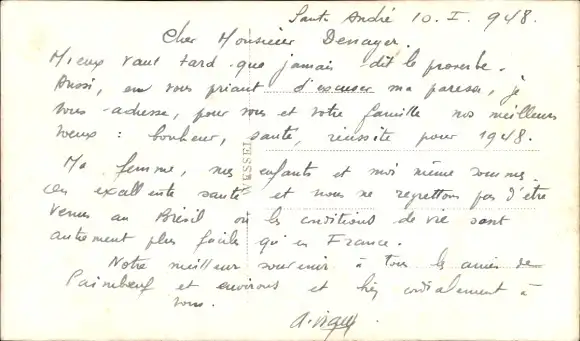 Santo André 10. I. 948.
Cher Monsieur Denayer.
Mieux vaut tard que jamais dit le proverbe.
Aussi, en vous priant d'excuser ma paresse, je
vous adresse, pour vous et votre famille nos meilleurs
voeux : bonheur, santé, réussite pour 1948.
Ma femme, mes enfants et moi même sommes
en excellente santé et nous ne regrettons pas d'être
venus au Brésil où les conditions de vie sont
autrement plus faciles qu'en France.
Notre meilleur souvenir à tous les amis de
Paimboeuf et environs et bien cordialement à
vous.
WESSEL